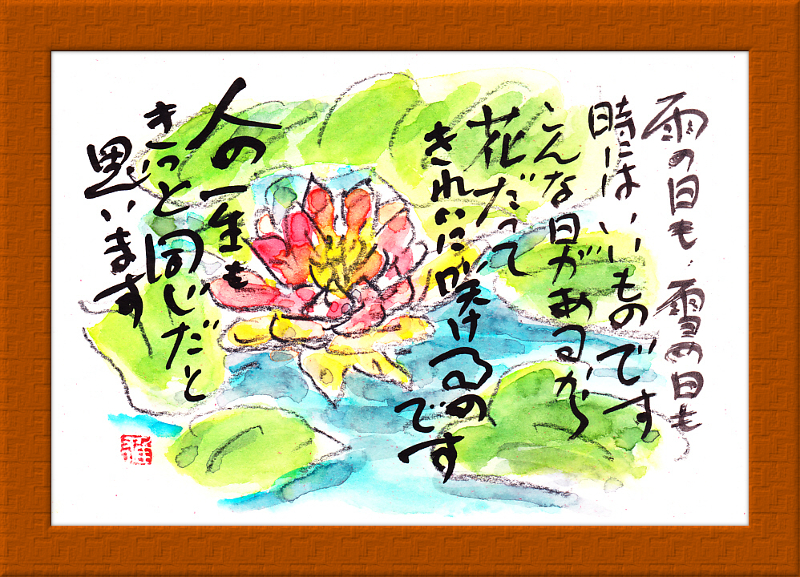 雨の日も 雪の日も
時にはいいものです
こんな日があるから
花だって
きれいに咲けるの
です
人の一生も
きっと同じだと
思います
雅